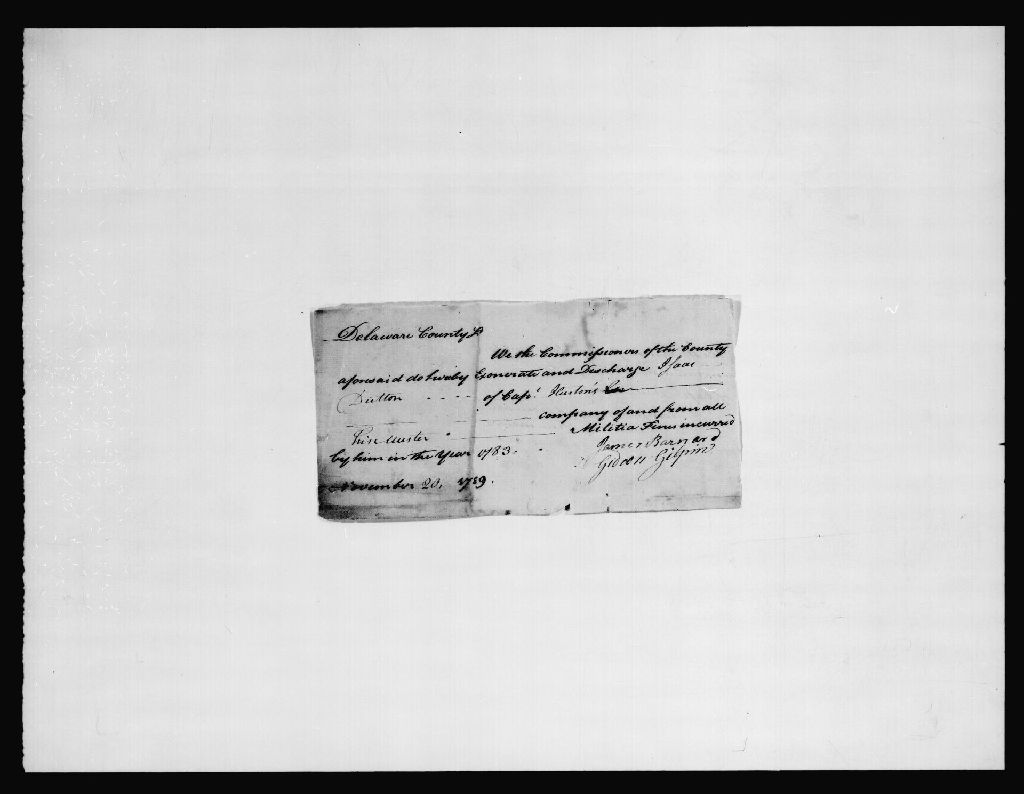 Delaware County Ss
We the Commissioners of the County
aforesaid do hereby Exonerate and Discharge Isaac
Dutton of Capt. Huston's
company of and from all
Militia Fines incurred
by him in the Year 1783.
James Barnard
Gideon Gilpin
November 20, 1789.